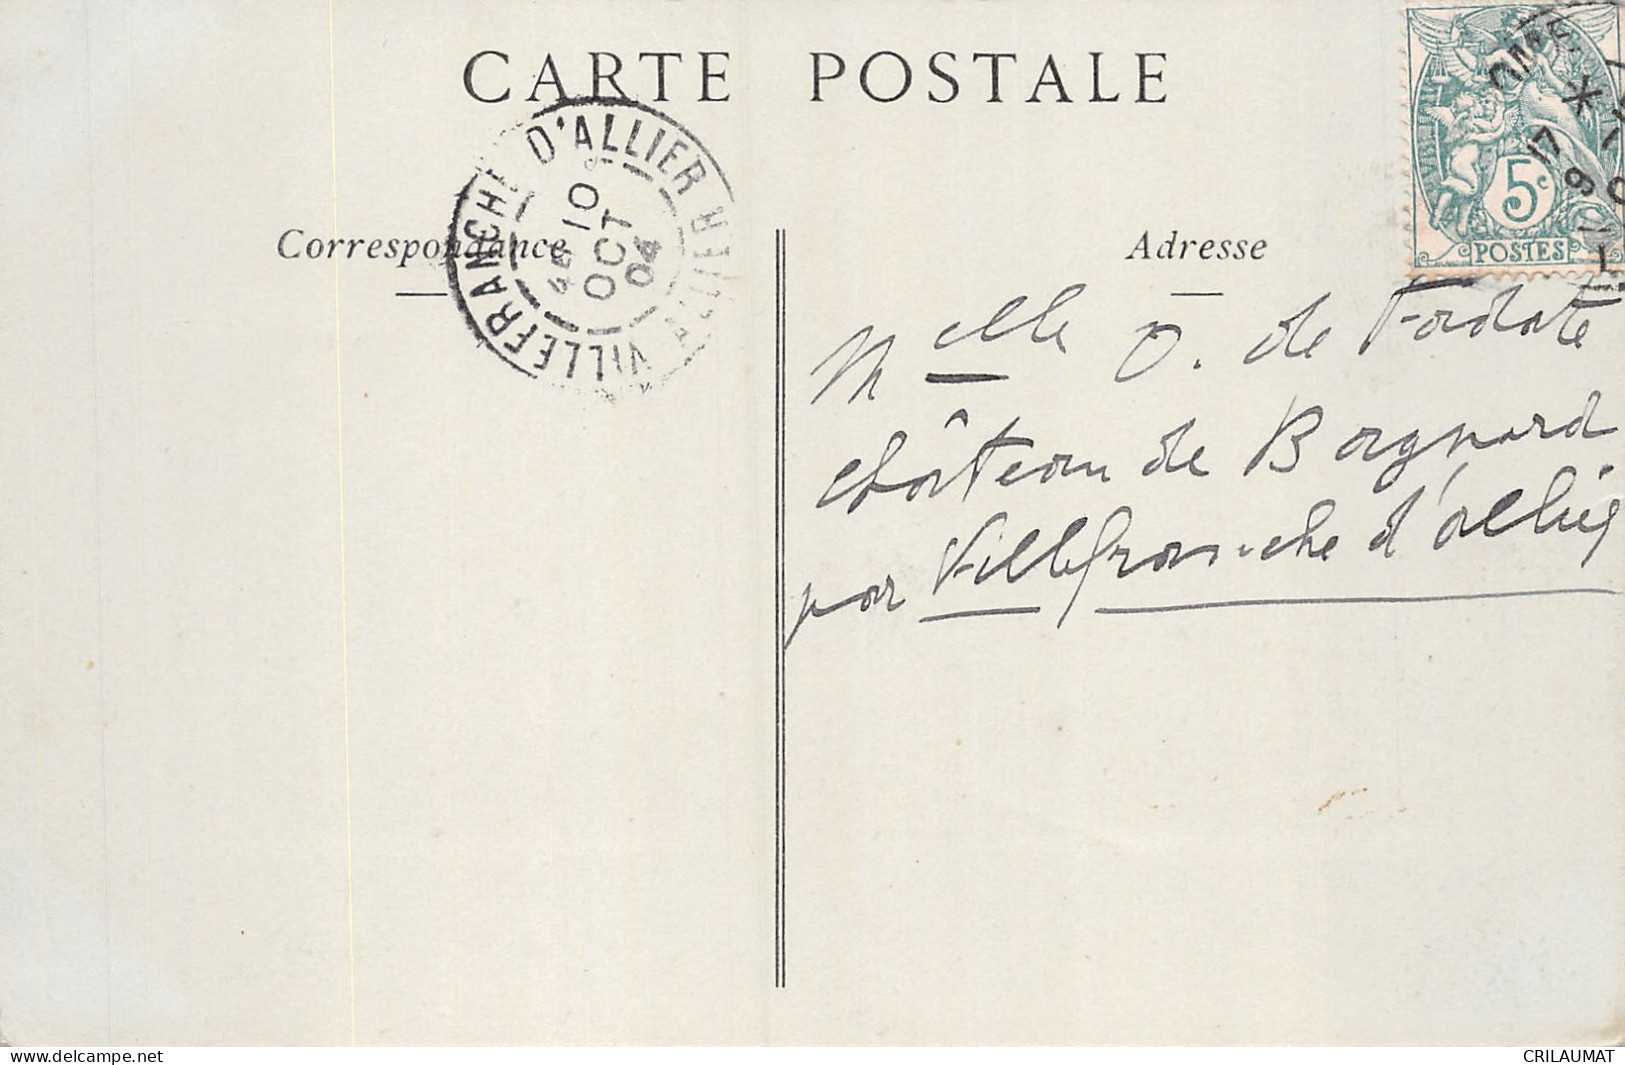 CARTE POSTALE
Correspondance
Adresse
VILLEFRANCHE D'ALLIER
ALLIER
10
OCT
04
5c
POSTES
Melle O. de Fordate
château de Bognard
par Villefranche d'allier
delcampe.net
CRILAUMAT